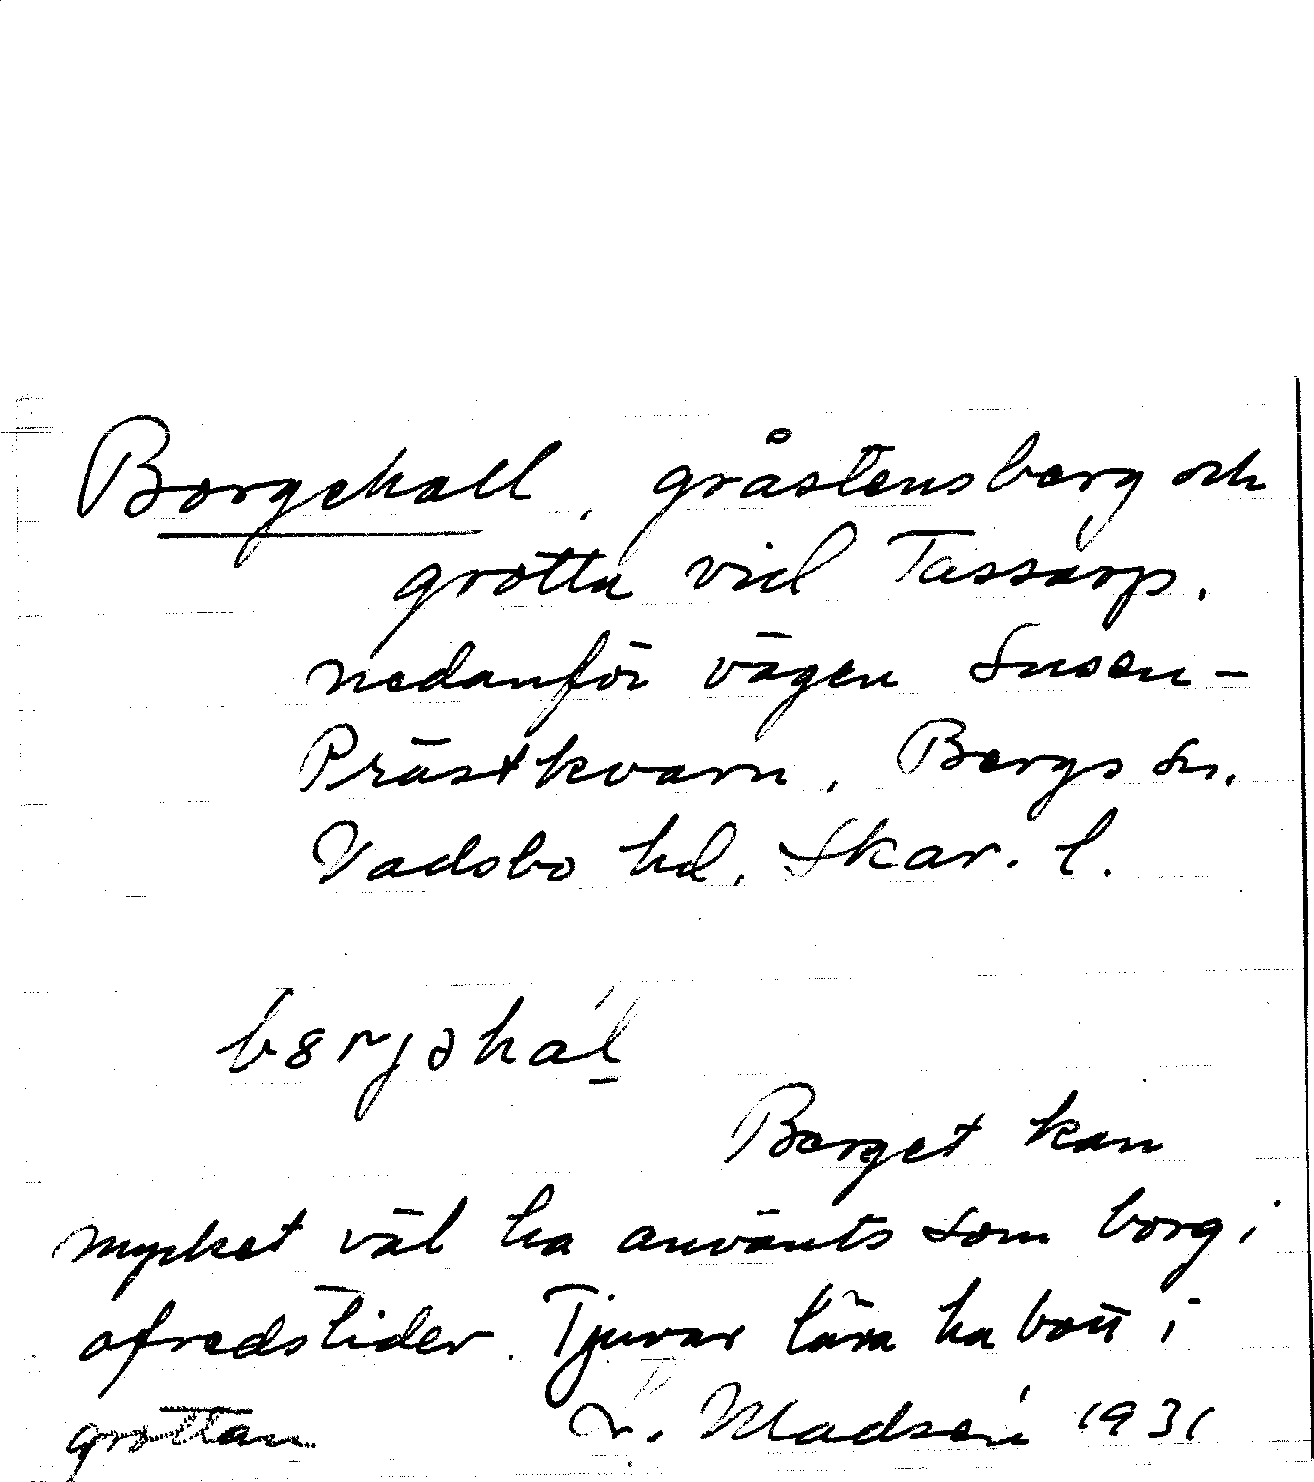 Borgehall, gråstensberg och
grotta vid Tassarp,
nedanför vägen Susen-
Prästkvarn, Bergs sn.
Vadsbo hd, Skar. l.
Berget kan
mycket väl ha använts som borg i
ofredstider. Tjuvar lära ha bott i
grottan. Madsén 1931